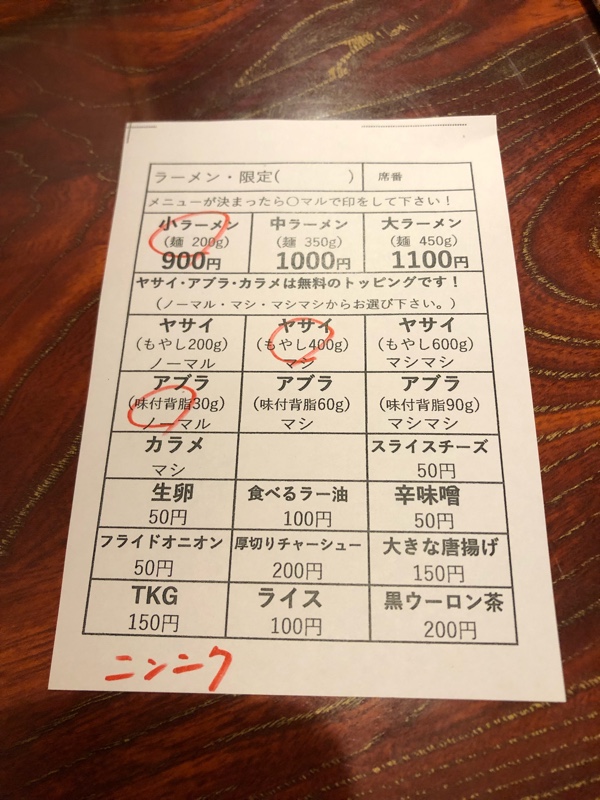 ラーメン・限定(　　　　) 席番
メニューが決まったら〇マルで印をして下さい！
小ラーメン 中ラーメン 大ラーメン
(麺 200g) (麺 350g) (麺 450g)
900円 1000円 1100円
ヤサイ・アブラ・カラメは無料のトッピングです！
(ノーマル・マシ・マシマシからお選び下さい。)
ヤサイ ヤサイ ヤサイ
(もやし200g) (もやし400g) (もやし600g)
ノーマル マシ マシマシ
アブラ アブラ アブラ
(味付背脂30g) (味付背脂60g) (味付背脂90g)
ノーマル マシ マシマシ
カラメ スライスチーズ
マシ 50円
生卵 食べるラー油 辛味噌
50円 100円 50円
フライドオニオン 厚切りチャーシュー 大きな唐揚げ
50円 200円 150円
TKG ライス 黒ウーロン茶
150円 100円 200円
ニンニク